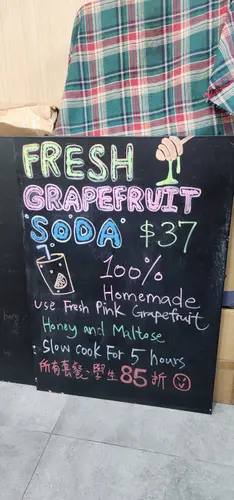 FRESH
GRAPEFRUIT
SODA $37
100%
Homemade
use Fresh Pink Grapefruit
Honey and Maltose
Slow cook For 5 hours
所有套餐、學生85折